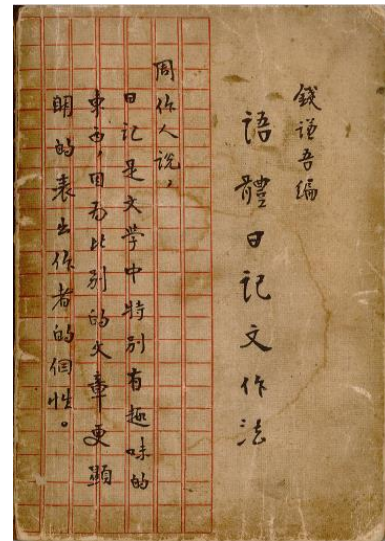 錢謙吾編
語體日記文作法
周作人說，
日記是文學中特別有趣味的
東西，因爲比別的文章更顯
明的表出作者的個性。